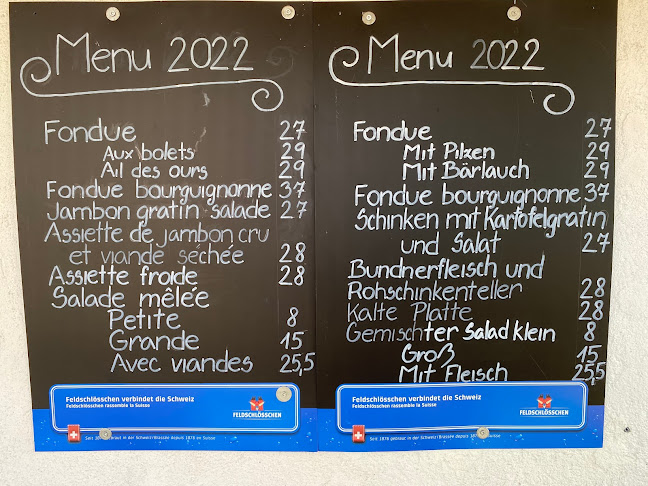 Menu 2022
Fondue 27
Aux bolets 29
Ail des ours 29
Fondue bourguignonne 37
Jambon gratin salade 27
Assiette de jambon cru
et viande séchée 28
Assiette froide 28
Salade mêlée
Petite 8
Grande 15
Avec viandes 25,5
Feldschlösschen verbindet die Schweiz
Feldschlösschen rassemble la Suisse
FELDSCHLÖSSCHEN
in der Schweiz/Brassée depuis 1876 en Suisse
Menu 2022
Fondue 27
Mit Pilzen 29
Mit Bärlauch 29
Fondue bourguignonne 37
Schinken mit Kartofelgratin
und Salat 27
Bundnerfleisch und
Rohschinkenteller 28
Kalte Platte 28
Gemischter Salad klein 8
Groß 15
Mit Fleisch 25,5
Feldschlösschen verbindet die Schweiz
Feldschlösschen rassemble la Suisse
FELDSCHLÖSSCHEN
Seit 1876 gebraut in der Schweiz/Brassée depuis 1876 en Suisse